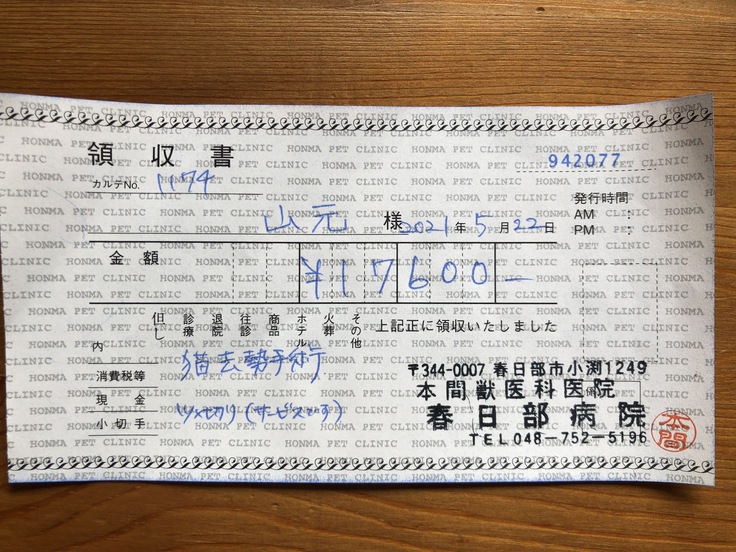 領収書
942077
カルテNo. 1174
発行時間
AM :
PM :
山元 様 2021年 5月 22日
金額 ¥17600-
但し 診療 退院 往診 商品 ホテル 火葬 その他 上記正に領収いたしました
内
消費税等
現金
小切手
猫去勢手術
ツメ切り(サービスです)
〒344-0007 春日部市小渕1249
本間獣医科医院
春日部病院
TEL 048-752-5196
本間
HONMA PET CLINIC